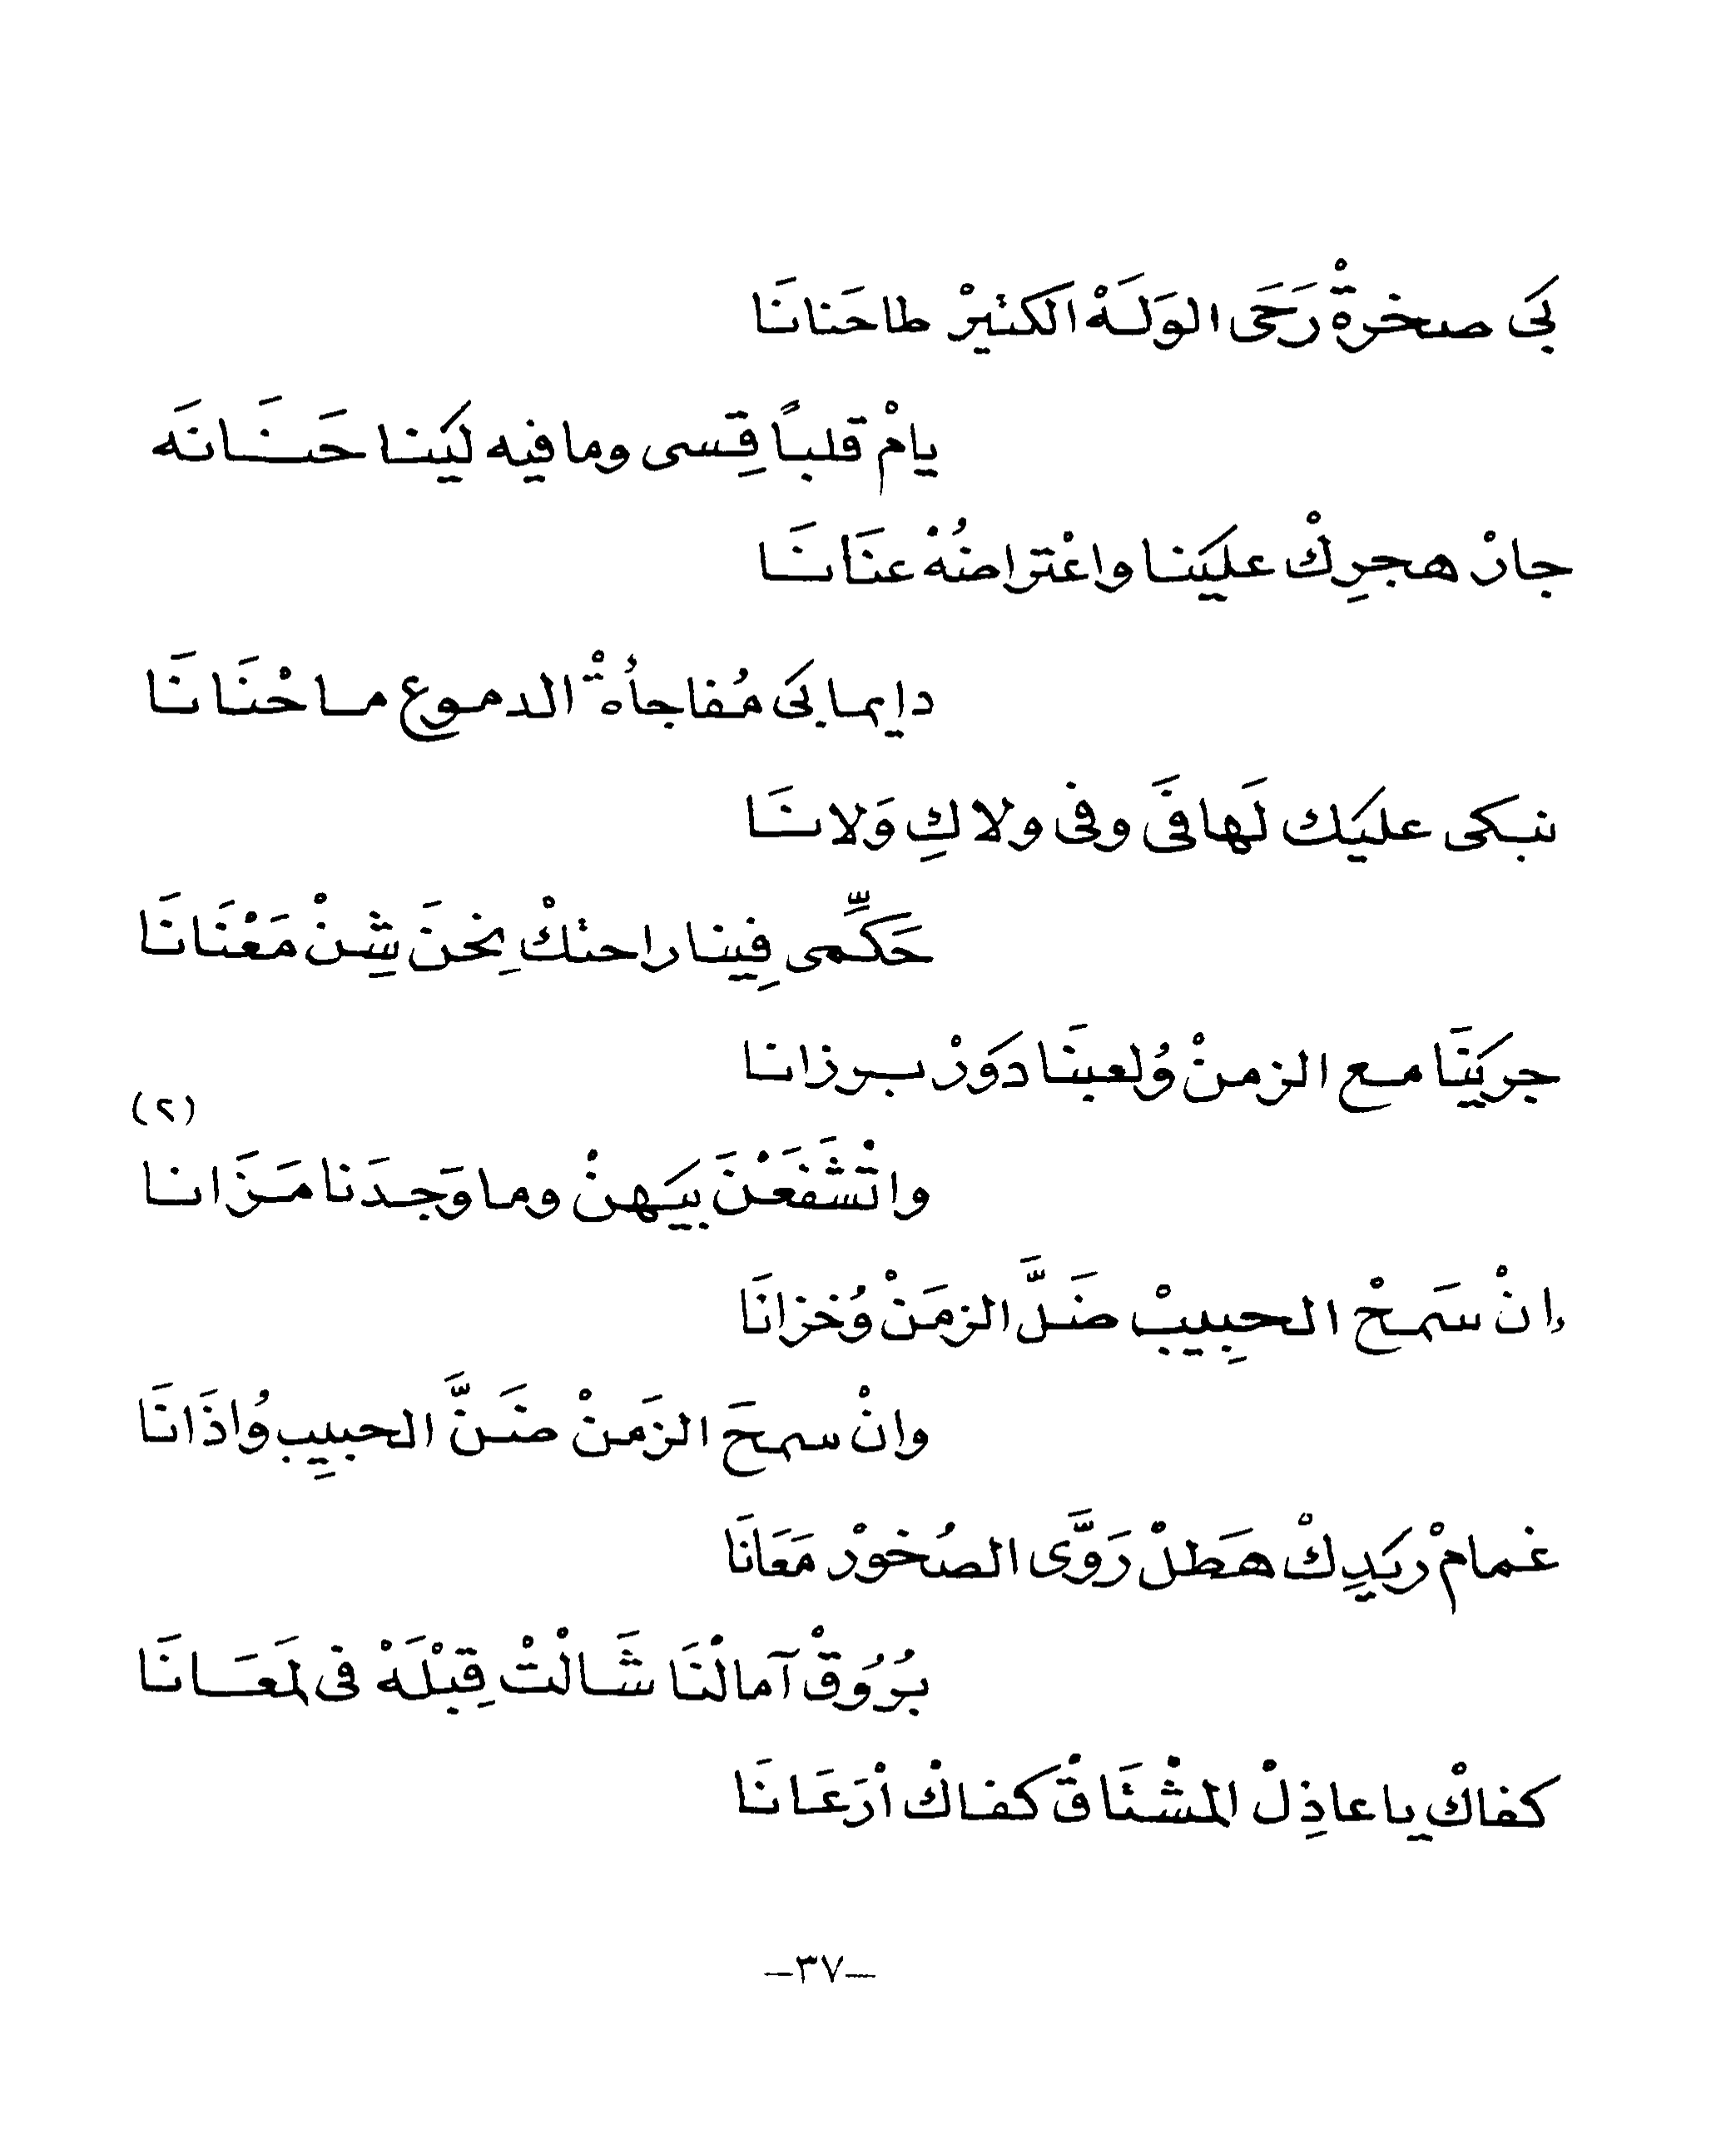 بَى صخرةْ رَحَى الوَلَهْ الكثيرْ طاحَنانَا
يامْ قلباً قِسى وما فيه ليَنا حَنَانَه
جارْ هجرِكْ عليَنا واعْتراضُهْ عنَانَا
دايما بَى مُفاجأةْ الدموع ما حْنَانَا
نبكى عليَك لَهافَى وفى ولاكِ وَلانَا
حَكِّمى فِينا راحتكْ نِحنَ شِنْ مَعْنَانَا
جريَنَا مع الزمنْ وُلعبنَا دَورْ برزانا
(٢)
واتْشَفَعْنَ بيَهنْ وما وَجدَنا مَزَانا
إنْ سَمحْ الحبِيبْ ضَلَّ الزمَنْ وُخزانَا
وانْ سمحَ الزَمنْ ضَنَّ الحبيِب وُاذَانَا
غمامْ ريَدِكْ هَطلْ رَوَّى الصُخورْ مَعَانَا
بُرُوَقْ آمالْنَا شَالْتْ قِبْلَهْ فى لمَعَانَا
كفاكْ يا عاذِلْ المشْتَاقْ كفاكْ ارْعَانَا
–٣٧–